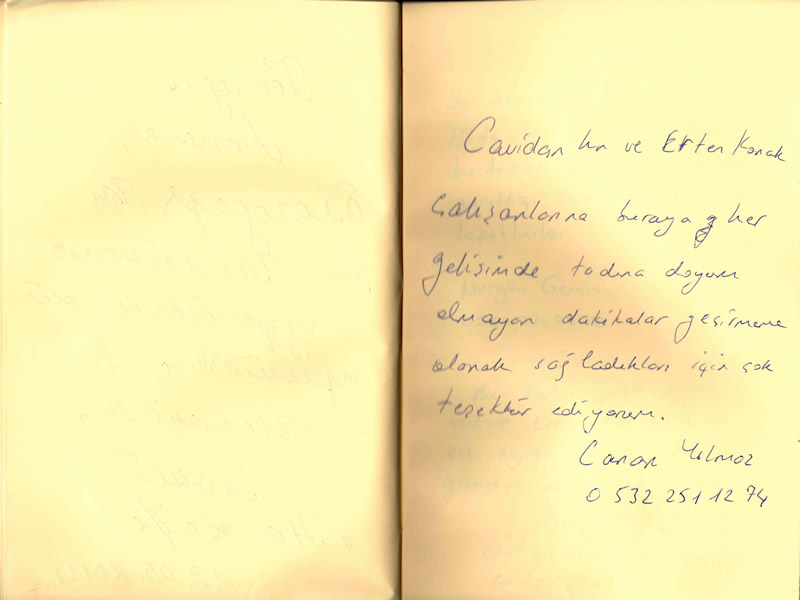 Cavidan hn ve Erten Konak
Çalışanlarına buraya her
gelişimde tadına doyum
olmayan dakikalar geçirmeme
olanak sağladıkları için çok
teşekkür ediyorum.
Canan Yılmaz
0 532 251 12 74